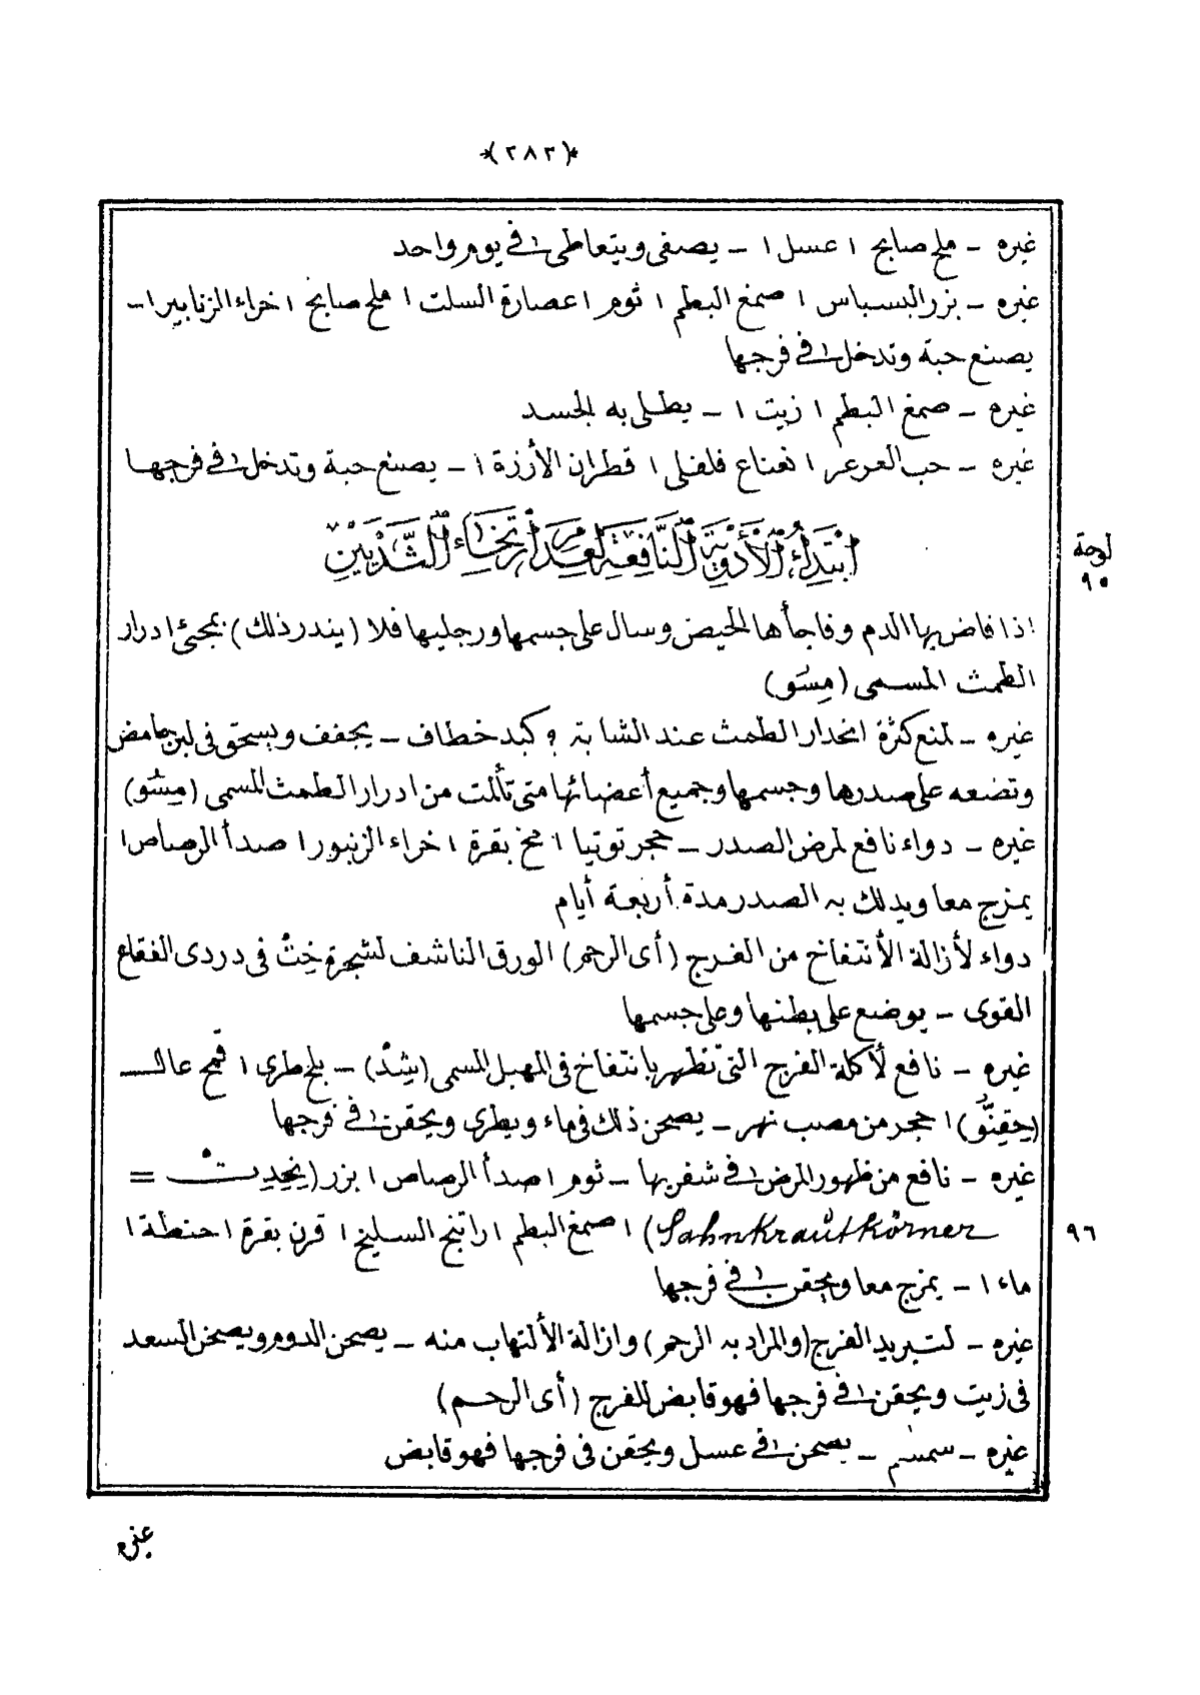 *(٢٨٢)*
غيره – ملح صابح ١ عسل ١ – يصفى ويتعاطى ١ فى يوم واحد
غيره – بزر البسباس ١ صمغ البطم ١ ثوم ١ عصارة السلت ١ ملح صابح ١ خراء الزنابير ١ –
يصنع حبة وتدخل ١ فى فرجها
غيره – صمغ البطم ١ زيت ١ – يطلى به الجسد
غيره – حب العرعر ١ نعناع فلفلى ١ قطران الأرزة ١ – يصنع حبة وتدخل ١ فى فرجها
ابْتِدَاءُ الْأَدْوِيَةِ النَّافِعَةِ لِعَدَمِ ارْتِخَاءِ الثَّدْيَيْنِ
لوحة
٩٥
اذا فاض بها الدم وفاجأها الحيض وسال على جسمها ورجليها فلا (يندر ذلك) بمجئ ادرار
الطمث المسمى (مِسَو)
غيره – لمنع كثرة انحدار الطمث عند الشابة ؟ كبد خطاف – يجفف ويسحق فى لبن حامض
وتضعه على صدرها وجسمها وجميع أعضائها متى تألمت من ادرار الطمث المسمى (مِسَو)
غيره – دواء نافع لمرض الصدر – حجر توتيا ١ مخ بقرة ١ خراء الزنبور ١ صدأ الرصاص ١
يمزج معا ويدلك به الصدر مدة أربعة أيام
دواء لأزالة الأنتفاخ من الفرج (أى الرحم) الورق الناشف لشجرة خِتْ فى دردى الفقاع
القوى – يوضع على بطنها وعلى جسمها
غيره – نافع لأكلة الفرج التى تظهر بانتفاخ فى المهبل المسمى (شِدْ) – بلح طرى ١ قمح عال
(حِقِنَّو) ١ حجر من مصب نهر – يصحن ذلك فى ماء ويطرى ويحقن ١ فى فرجها
غيره – نافع من ظهور المرض ١ فى شفريها – ثوم ١ صدأ الرصاص ١ بزر (نِحِدِتْ =
Sahnkrautkörner) ١ صمغ البطم ١ راتنج السليخ ١ قرن بقرة ١ حنطة ١
٩٦
ماء ١ – يمزج معا ويحقن ١ فى فرجها
غيره – لتبريد الفرج (والمراد به الرحم) وازالة الألتهاب منه – يصحن الدوم ويصحن السعد
فى زيت ويحقن ١ فى فرجها فهو قابض للفرج (أى الرحم)
غيره – سمسم – يصحن ١ فى عسل ويحقن فى فرجها فهو قابض
غيره